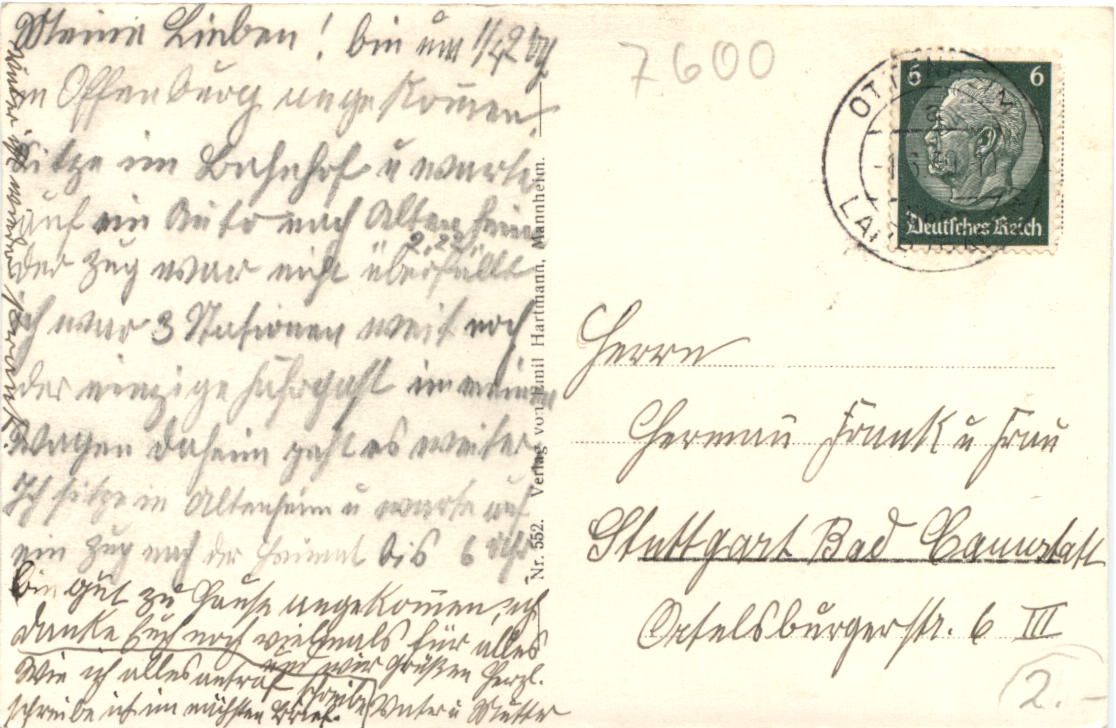 Meine Lieben! bin um 1/2 2 Uhr
in Offenburg angekommen.
Sitze im Bahnhof u warte
auf ein Auto nach Altenheim
der Zug war nicht überfüllt
ich war 3 Stationen weit noch
der einzige Fahrgast in meinem
Wagen daheim geht es weiter
Ich sitze in Altenheim u warte auf
ein Zug nach der Heimat bis 6 Uhr
bin gut zu Hause angekommen, ich
danke Euch noch vielmals für alles
Wie ich alles antraf
schreibe ich im nächsten Brief.
und wir Grüßen Herzl.
Vater u Mutter
Nr. 552. Verlag von Emil Hartmann, Mannheim.
7600
6 6
Deutsches Reich
Herrn
Herman Frank u Frau
Stuttgart Bad Cannstatt
Ortelsburgerstr. 6 III
2.-